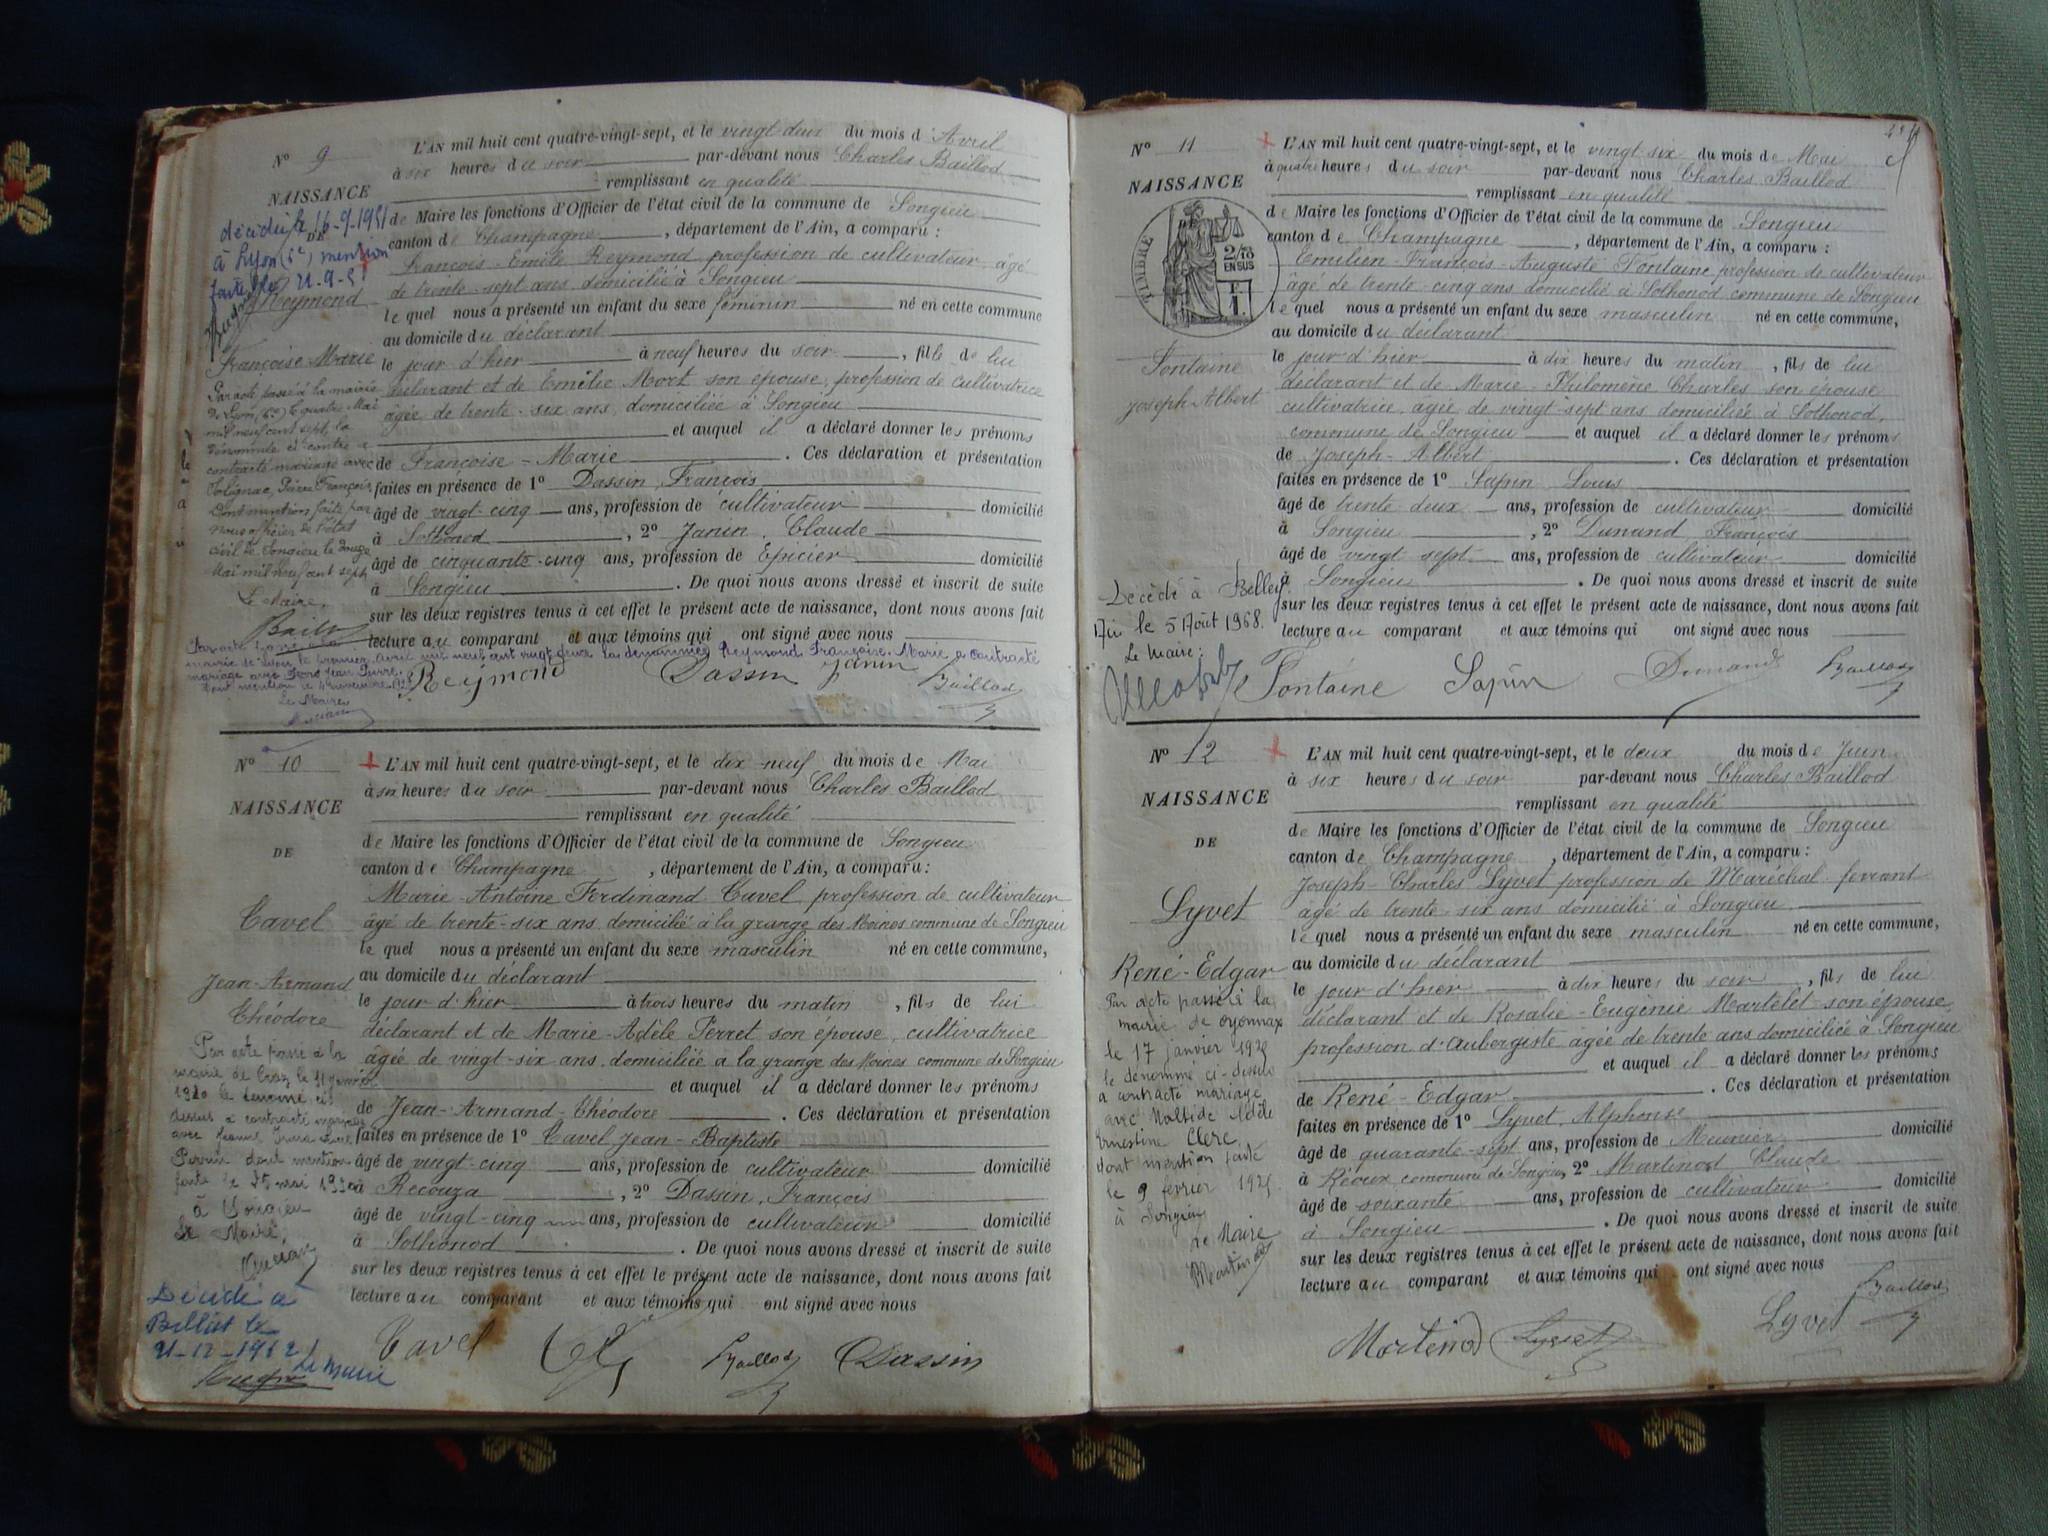 N° 9
NAISSANCE
DE
décédée le 16-9-1951
à Lyon (6e) mention
faite le 21-9-51
Reymond
Françoise-Marie
Par acte passé à la mairie
de Lyon (6e) le quatre Mai
mil neuf cent sept, la
dénommée ci-contre a
contracté mariage avec
Pierre François
Dont mention faite par
nous officier de l'état
civil de Songieu le douze
Mai mil neuf cent sept
Le Maire,
Baillod
L'AN mil huit cent quatre-vingt-sept, et le vingt-deux du mois d'Avril
à six heures du soir par-devant nous Charles Baillod
remplissant en qualité
de Maire les fonctions d'Officier de l'état civil de la commune de Songieu
canton de Champagne, département de l'Ain, a comparu :
François-Emile Reymond profession de cultivateur, âgé
de trente-sept ans domicilié à Songieu
lequel nous a présenté un enfant du sexe féminin né en cette commune
au domicile du déclarant
le jour d'hier à neuf heures du soir, fille de lui
déclarant et de Emélie Mort son épouse, profession de cultivatrice
âgée de trente-six ans, domiciliée à Songieu
et auquel il a déclaré donner les prénoms
de Françoise-Marie. Ces déclaration et présentation
faites en présence de 1° Dassin, François
âgé de vingt-cinq ans, profession de cultivateur domicilié
à Sothonod, 2° Janin, Claude
âgé de cinquante-cinq ans, profession de Epicier domicilié
à Songieu. De quoi nous avons dressé et inscrit de suite
sur les deux registres tenus à cet effet le présent acte de naissance, dont nous avons fait
lecture au comparant et aux témoins qui ont signé avec nous
mairie de Lyon le premier avril mil neuf cent vingt-deux la dénommée Reymond Françoise-Marie a contracté
mariage avec Jean Pierre
Dont mention le 4 novembre
Le Maire
Reymond Dassin Janin Baillod
N° 10
NAISSANCE
DE
Cavel
Jean-Armand
Théodore
Par acte passé à la
mairie de le 11
1920 le dénommé ci
dessus a contracté mariage
avec Jeanne
Perrin dont mention
faite le 15 mai 1920
à Songieu
Le Maire,
Décédé à
le
21-12-1962
Le Maire
L'AN mil huit cent quatre-vingt-sept, et le dix-neuf du mois de Mai
à six heures du soir par-devant nous Charles Baillod
remplissant en qualité
de Maire les fonctions d'Officier de l'état civil de la commune de Songieu
canton de Champagne, département de l'Ain, a comparu :
Marie-Antoine Ferdinand Cavel profession de cultivateur
âgé de trente-six ans domicilié à la grange des Moines commune de Songieu
lequel nous a présenté un enfant du sexe masculin né en cette commune,
au domicile du déclarant
le jour d'hier à trois heures du matin, fils de lui
déclarant et de Marie-Adèle Perret son épouse, cultivatrice
âgée de vingt-six ans, domiciliée à la grange des Moines commune de Songieu
et auquel il a déclaré donner les prénoms
de Jean-Armand-Théodore. Ces déclaration et présentation
faites en présence de 1° Cavel Jean-Baptiste
âgé de vingt-cinq ans, profession de cultivateur domicilié
à Recouza, 2° Dassin, François
âgé de vingt-cinq ans, profession de cultivateur domicilié
à Sothonod. De quoi nous avons dressé et inscrit de suite
sur les deux registres tenus à cet effet le présent acte de naissance, dont nous avons fait
lecture au comparant et aux témoins qui ont signé avec nous
Cavel Baillod Dassin
N° 11
NAISSANCE
TIMBRE
2/10
EN SUS
F
1.
Fontaine
Joseph-Albert
Décédé à Belley
Ain le 5 Août 1968.
Le Maire :
L'AN mil huit cent quatre-vingt-sept, et le vingt-six du mois de Mai
à quatre heures du soir par-devant nous Charles Baillod
remplissant en qualité
de Maire les fonctions d'Officier de l'état civil de la commune de Songieu
canton de Champagne, département de l'Ain, a comparu :
Emilien-François-Auguste Fontaine, profession de cultivateur
âgé de trente-cinq ans domicilié à Sothonod commune de Songieu
lequel nous a présenté un enfant du sexe masculin né en cette commune,
au domicile du déclarant
le jour d'hier à dix heures du matin, fils de lui
déclarant et de Marie-Philomène Charles son épouse
cultivatrice, âgée de vingt-sept ans domiciliée à Sothonod,
commune de Songieu et auquel il a déclaré donner les prénoms
de Joseph-Albert. Ces déclaration et présentation
faites en présence de 1° Sapin Louis
âgé de trente deux ans, profession de cultivateur domicilié
à Songieu, 2° Dunand, François
âgé de vingt sept ans, profession de cultivateur domicilié
à Songieu. De quoi nous avons dressé et inscrit de suite
sur les deux registres tenus à cet effet le présent acte de naissance, dont nous avons fait
lecture au comparant et aux témoins qui ont signé avec nous
Fontaine Sapin Dunand Baillod
N° 12
NAISSANCE
DE
Lyvet
René-Edgar
Par acte passé à la
mairie de Oyonnax
le 17 janvier 1925
le dénommé ci-dessus
a contracté mariage
avec Adèle
Ernestine Clerc
dont mention faite
le 9 février 1925
à Songieu
Le Maire
Martinod
L'AN mil huit cent quatre-vingt-sept, et le deux du mois de Juin
à six heures du soir par-devant nous Charles Baillod
remplissant en qualité
de Maire les fonctions d'Officier de l'état civil de la commune de Songieu
canton de Champagne, département de l'Ain, a comparu :
Joseph-Charles Lyvet profession de Maréchal-ferrant
âgé de trente-six ans domicilié à Songieu
lequel nous a présenté un enfant du sexe masculin né en cette commune,
au domicile du déclarant
le jour d'hier à dix heures du soir, fils de lui
déclarant et de Rosalie-Eugénie Martelet son épouse
profession d'aubergiste âgée de trente ans domiciliée à Songieu
et auquel il a déclaré donner les prénoms
de René-Edgar. Ces déclaration et présentation
faites en présence de 1° Lyvet, Alphonse
âgé de quarante-sept ans, profession de Meunier domicilié
à Réoux, commune de Songieu, 2° Martinod, Claude
âgé de soixante ans, profession de cultivateur domicilié
à Songieu. De quoi nous avons dressé et inscrit de suite
sur les deux registres tenus à cet effet le présent acte de naissance, dont nous avons fait
lecture au comparant et aux témoins qui ont signé avec nous
Martinod Lyvet Lyvet Baillod